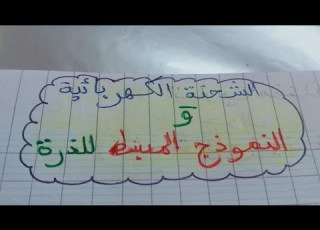 الشحنة الكهربائية
و
النموذج المبسط للذرة